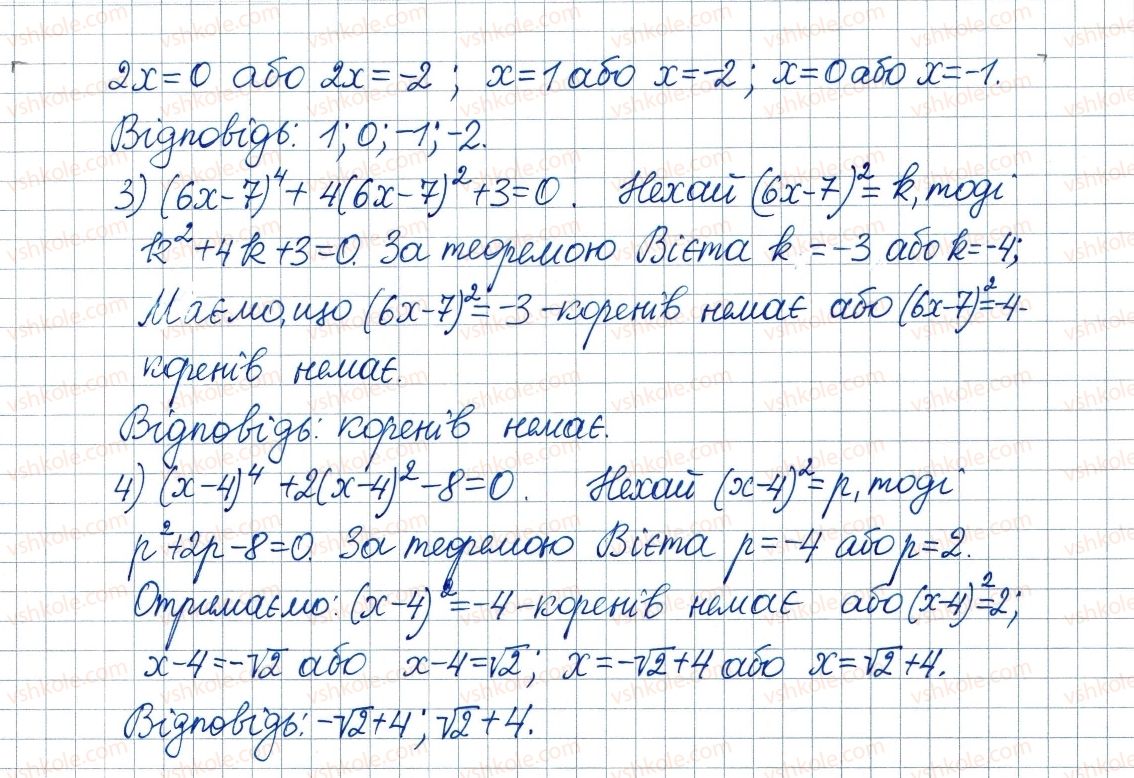 2x=0 або 2x=-2; x=1 або x=-2; x=0 або x=-1.
Відповідь: 1; 0; -1; -2.
3) (6x-7)⁴+4(6x-7)²+3=0. Нехай (6x-7)²=k, тоді
k²+4k+3=0. За теоремою Вієта k=-3 або k=-4;
Маємо, що (6x-7)²=-3 - коренів немає або (6x-7)²=-4-
коренів немає.
Відповідь: коренів немає.
4) (x-4)⁴+2(x-4)²-8=0. Нехай (x-4)²=p, тоді
p²+2p-8=0. За теоремою Вієта p=-4 або p=2.
Отримаємо: (x-4)²=-4 - коренів немає або (x-4)²=2;
x-4=-√2 або x-4=√2; x=-√2+4 або x=√2+4.
Відповідь: -√2+4; √2+4.